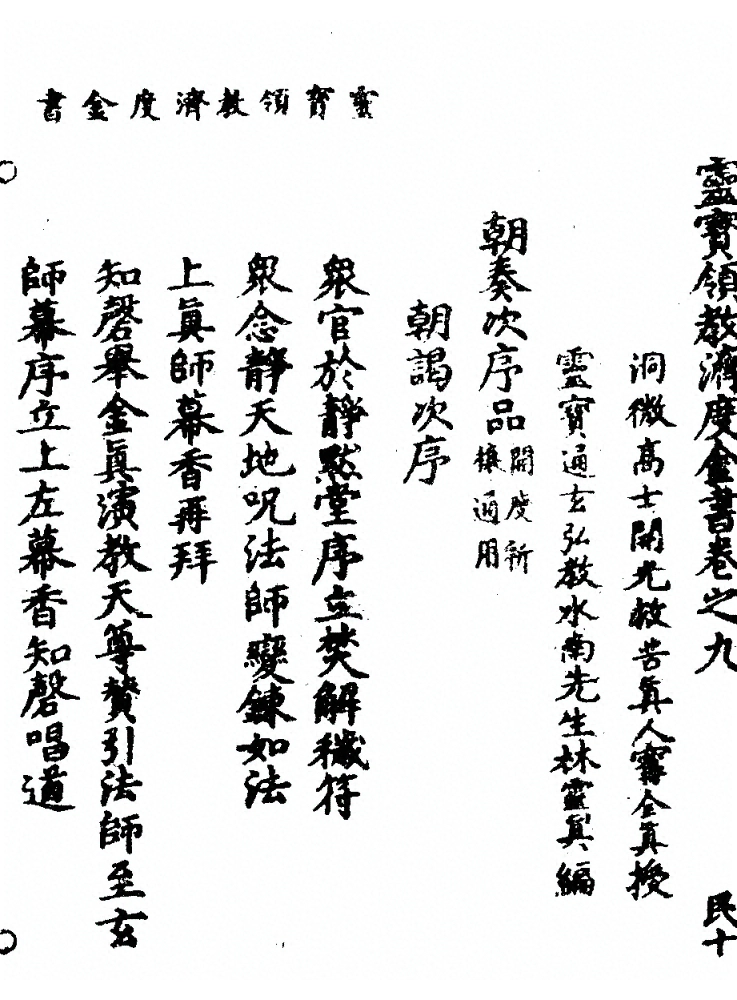 靈寶領教濟度金書
靈寶領教濟度金書卷之九 民十
洞微高士開光救苦眞人寗全眞授
靈寶通玄弘教水南先生林靈眞編
朝奏次序品 開度祈禳通用
朝謁次序
衆官於靜默堂序立焚解穢符
衆念靜天地呪法師變鍊如法
上眞師幕香再拜
知磬舉金眞演教天尊贊引法師至玄
師幕序立上左幕香知磬唱道